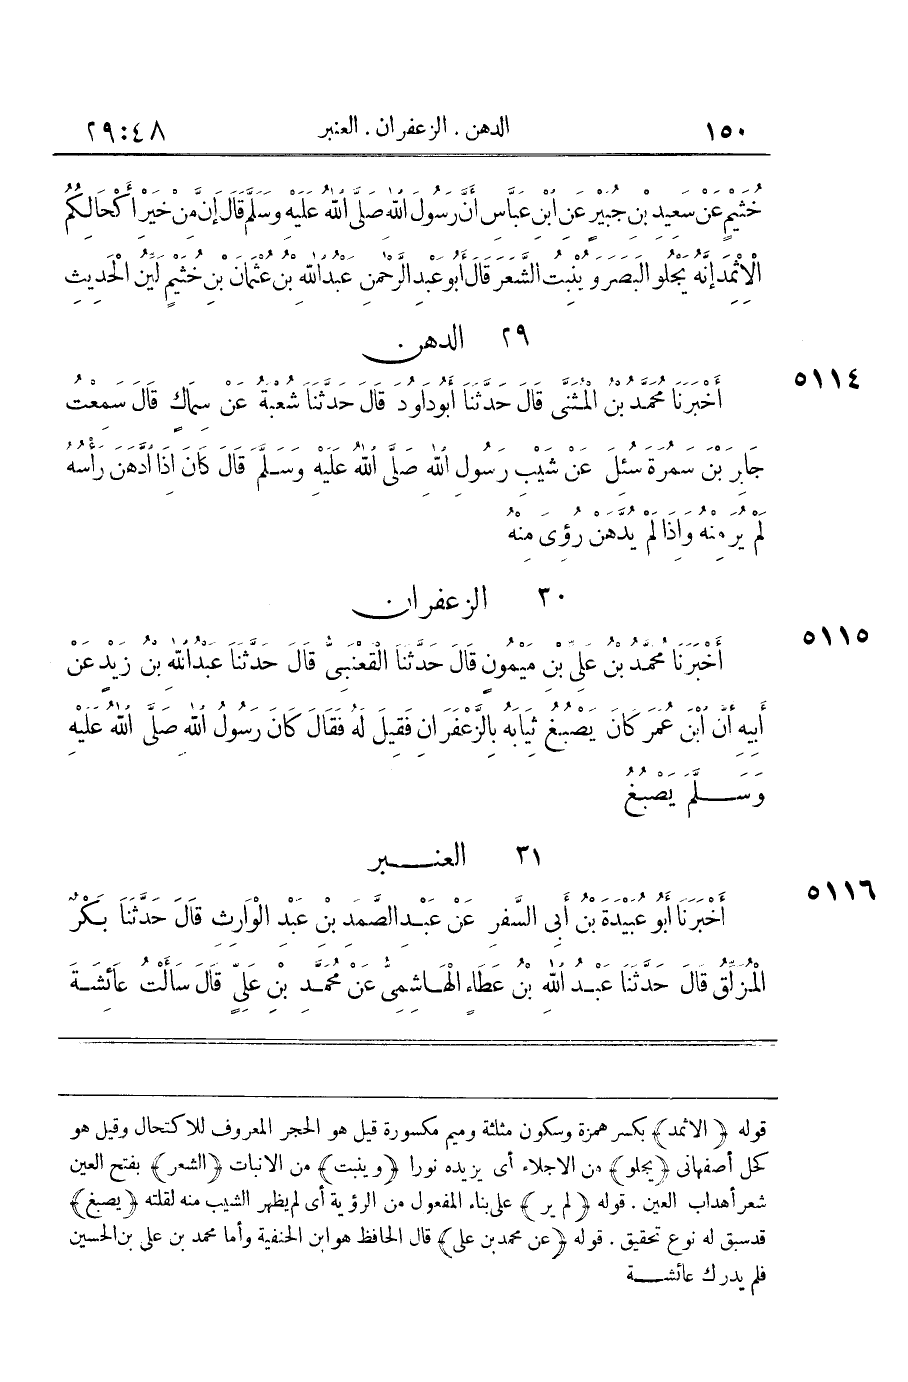 ١٥٠ الدهن . الزعفران . العنبر ٢٩:٤٨
خُثَيْمٍ عَنْ سَعِيدِ بْنِ جُبَيْرٍ عَنِ ابْنِ عَبَّاسٍ أَنَّ رَسُولَ اللّٰهِ صَلَّى اللّٰهُ عَلَيْهِ وَسَلَّمَ قَالَ إِنَّ مِنْ خَيْرِ أَكْحَالِكُمُ
الْإِثْمِدَ إِنَّهُ يَجْلُو الْبَصَرَ وَيُنْبِتُ الشَّعَرَ قَالَ أَبُو عَبْدِ الرَّحْمٰنِ عَبْدُ اللّٰهِ بْنُ عُثْمَانَ بْنِ خُثَيْمٍ لَيِّنُ الْحَدِيثِ
٢٩ الدهن
٥١١٤ أَخْبَرَنَا مُحَمَّدُ بْنُ الْمُثَنَّى قَالَ حَدَّثَنَا أَبُو دَاوُدَ قَالَ حَدَّثَنَا شُعْبَةُ عَنْ سِمَاكٍ قَالَ سَمِعْتُ
جَابِرَ بْنَ سَمُرَةَ سُئِلَ عَنْ شَيْبِ رَسُولِ اللّٰهِ صَلَّى اللّٰهُ عَلَيْهِ وَسَلَّمَ قَالَ كَانَ اذَا ادَّهَنَ رَأْسُهُ
لَمْ يُرَ مِنْهُ وَاذَا لَمْ يُدَّهَنْ رُؤِىَ مِنْهُ
٣٠ الزعفران
٥١١٥ أَخْبَرَنَا مُحَمَّدُ بْنُ عَلِيِّ بْنِ مَيْمُونٍ قَالَ حَدَّثَنَا الْقَعْنَبِىُّ قَالَ حَدَّثَنَا عَبْدُ اللّٰهِ بْنُ زَيْدٍ عَنْ
أَبِيهِ أَنَّ ابْنَ عُمَرَ كَانَ يَصْبُغُ ثِيَابَهُ بِالزَّعْفَرَانِ فَقِيلَ لَهُ فَقَالَ كَانَ رَسُولُ اللّٰهِ صَلَّى اللّٰهُ عَلَيْهِ
وَسَلَّمَ يَصْبُغُ
٣١ العنبر
٥١١٦ أَخْبَرَنَا أَبُو عُبَيْدَةَ بْنُ أَبِى السَّفَرِ عَنْ عَبْدِ الصَّمَدِ بْنِ عَبْدِ الْوَارِثِ قَالَ حَدَّثَنَا بَكْرٌ
الْمُزَلِّقُ قَالَ حَدَّثَنَا عَبْدُ اللّٰهِ بْنُ عَطَاءٍ الْهَاشِمِىُّ عَنْ مُحَمَّدِ بْنِ عَلِيٍّ قَالَ سَأَلْتُ عَائِشَةَ
قوله ﴿الاثمد﴾ بكسر همزة وسكون مثلثة وميم مكسورة قيل هو الحجر المعروف للاكتحال وقيل هو
كحل أصفهانى ﴿يجلو﴾ من الاجلاء أى يزيده نورا ﴿وينبت﴾ من الانبات ﴿الشعر﴾ بفتح العين
شعر أهداب العين . قوله ﴿لم ير﴾ على بناء المفعول من الرؤية أى لم يظهر الشيب منه لقلته ﴿يصبغ﴾
قد سبق له نوع تحقيق . قوله ﴿عن محمد بن على﴾ قال الحافظ هو ابن الحنفية وأما محمد بن على بن الحسين
فلم يدرك عائشة